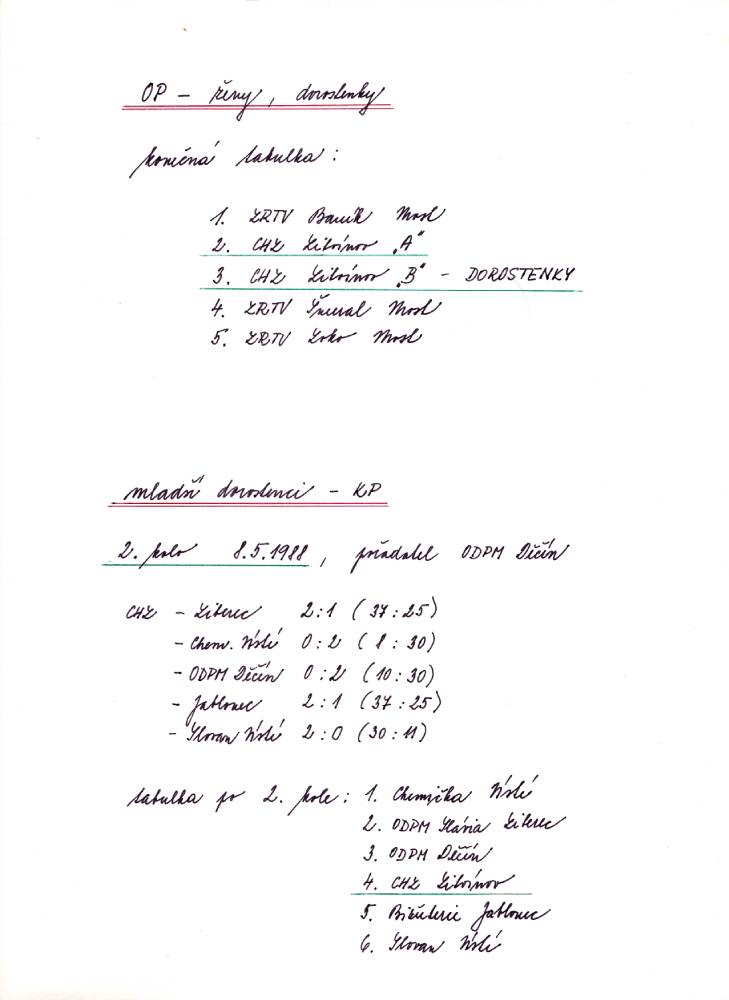 OP - ženy, dorostenky
konečná tabulka:
1. ZRTV Baník Most
2. CHZ Litvínov "A"
3. CHZ Litvínov "B" - DOROSTENKY
4. ZRTV Šmeral Most
5. ZRTV Loko Most
mladší dorostenci - KP
2. kolo 8.5.1988, pořadatel ODPM Děčín
CHZ - Liberec 2:1 (37:25)
- Chem. Ústí 0:2 (8:30)
- ODPM Děčín 0:2 (10:30)
- Jablonec 2:1 (37:25)
- Slovan Ústí 2:0 (30:11)
tabulka po 2. kole: 1. Chemička Ústí
2. ODPM Slávia Liberec
3. ODPM Děčín
4. CHZ Litvínov
5. Bižuterie Jablonec
6. Slovan Ústí